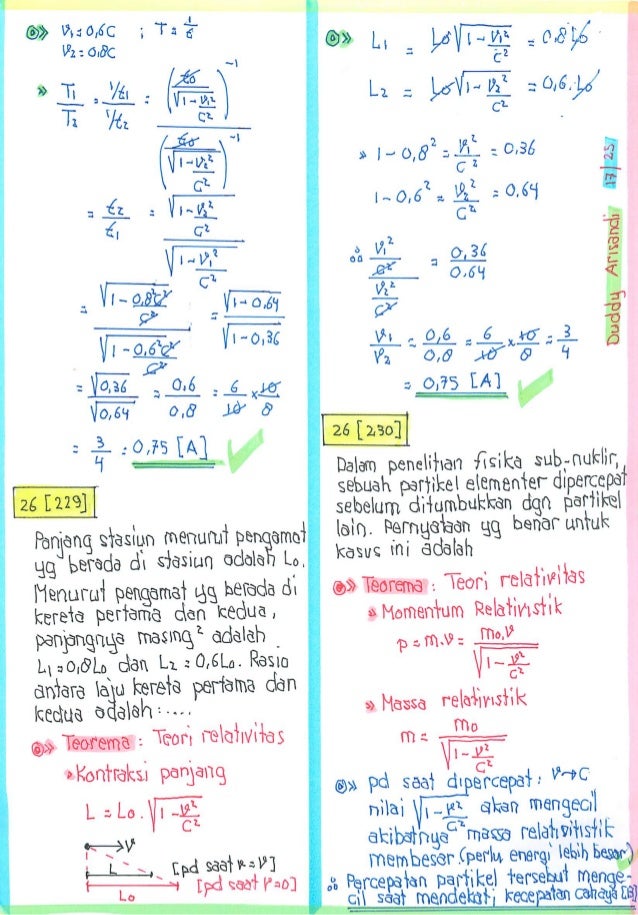 V₁ = 0,6C ; T = 1/t
V₂ = 0,8C
T₁/T₂ = (1/t₁)/(1/t₂) = (t₀/√(1-V₁²/C²))⁻¹ / (t₀/√(1-V₂²/C²))⁻¹
= t₂/t₁ = √(1-V₂²/C²) / √(1-V₁²/C²)
= √(1-0,8²C²/C²) / √(1-0,6²C²/C²) = √(1-0,64) / √(1-0,36)
= √0,36/√0,64 = 0,6/0,8 = 6/10 × 10/8
= 3/4 = 0,75 [A]
26 [229]
Panjang stasiun menurut pengamat
yg berada di stasiun adalah L₀.
Menurut pengamat yg berada di
kereta pertama dan kedua,
panjangnya masing² adalah
L₁=0,8L₀ dan L₂=0,6L₀. Rasio
antara laju kereta pertama dan
kedua adalah:....
Teorema : Teori relativitas
Kontraksi panjang
L = L₀.√(1-V²/C²)
→V
L [pd saat V=V]
L₀ [pd saat V=0]
L₁ = L₀√(1-V₁²/C²) = 0.8 L₀
L₂ = L₀√(1-V₂²/C²) = 0,6.L₀
» 1-0,8² = V₁²/C² = 0,36
1-0,6² = V₂²/C² = 0,64
∴ (V₁²/C²)/(V₂²/C²) = 0,36/0.64
V₁/V₂ = 0,6/0,8 = 6/10 × 10/8 = 3/4
= 0,75 [A]
26 [230]
Dalam penelitian fisika sub-nuklir,
sebuah partikel elementer dipercepat
sebelum ditumbukkan dgn partikel
lain. Pernyataan yg benar untuk
kasus ini adalah
Teorema : Teori relativitas
» Momentum Relativistik
p = m.V = m₀.V/√(1-V²/C²)
» Massa relativistik
m = m₀/√(1-V²/C²)
pd saat dipercepat : V→C
nilai √(1-V²/C²) akan mengecil
akibatnya massa relativitistik
membesar (perlu energi lebih besar)
∴ Percepatan partikel tersebut menge-
cil saat mendekati kecepatan cahaya [B]
Duddy Arisandi 17/25